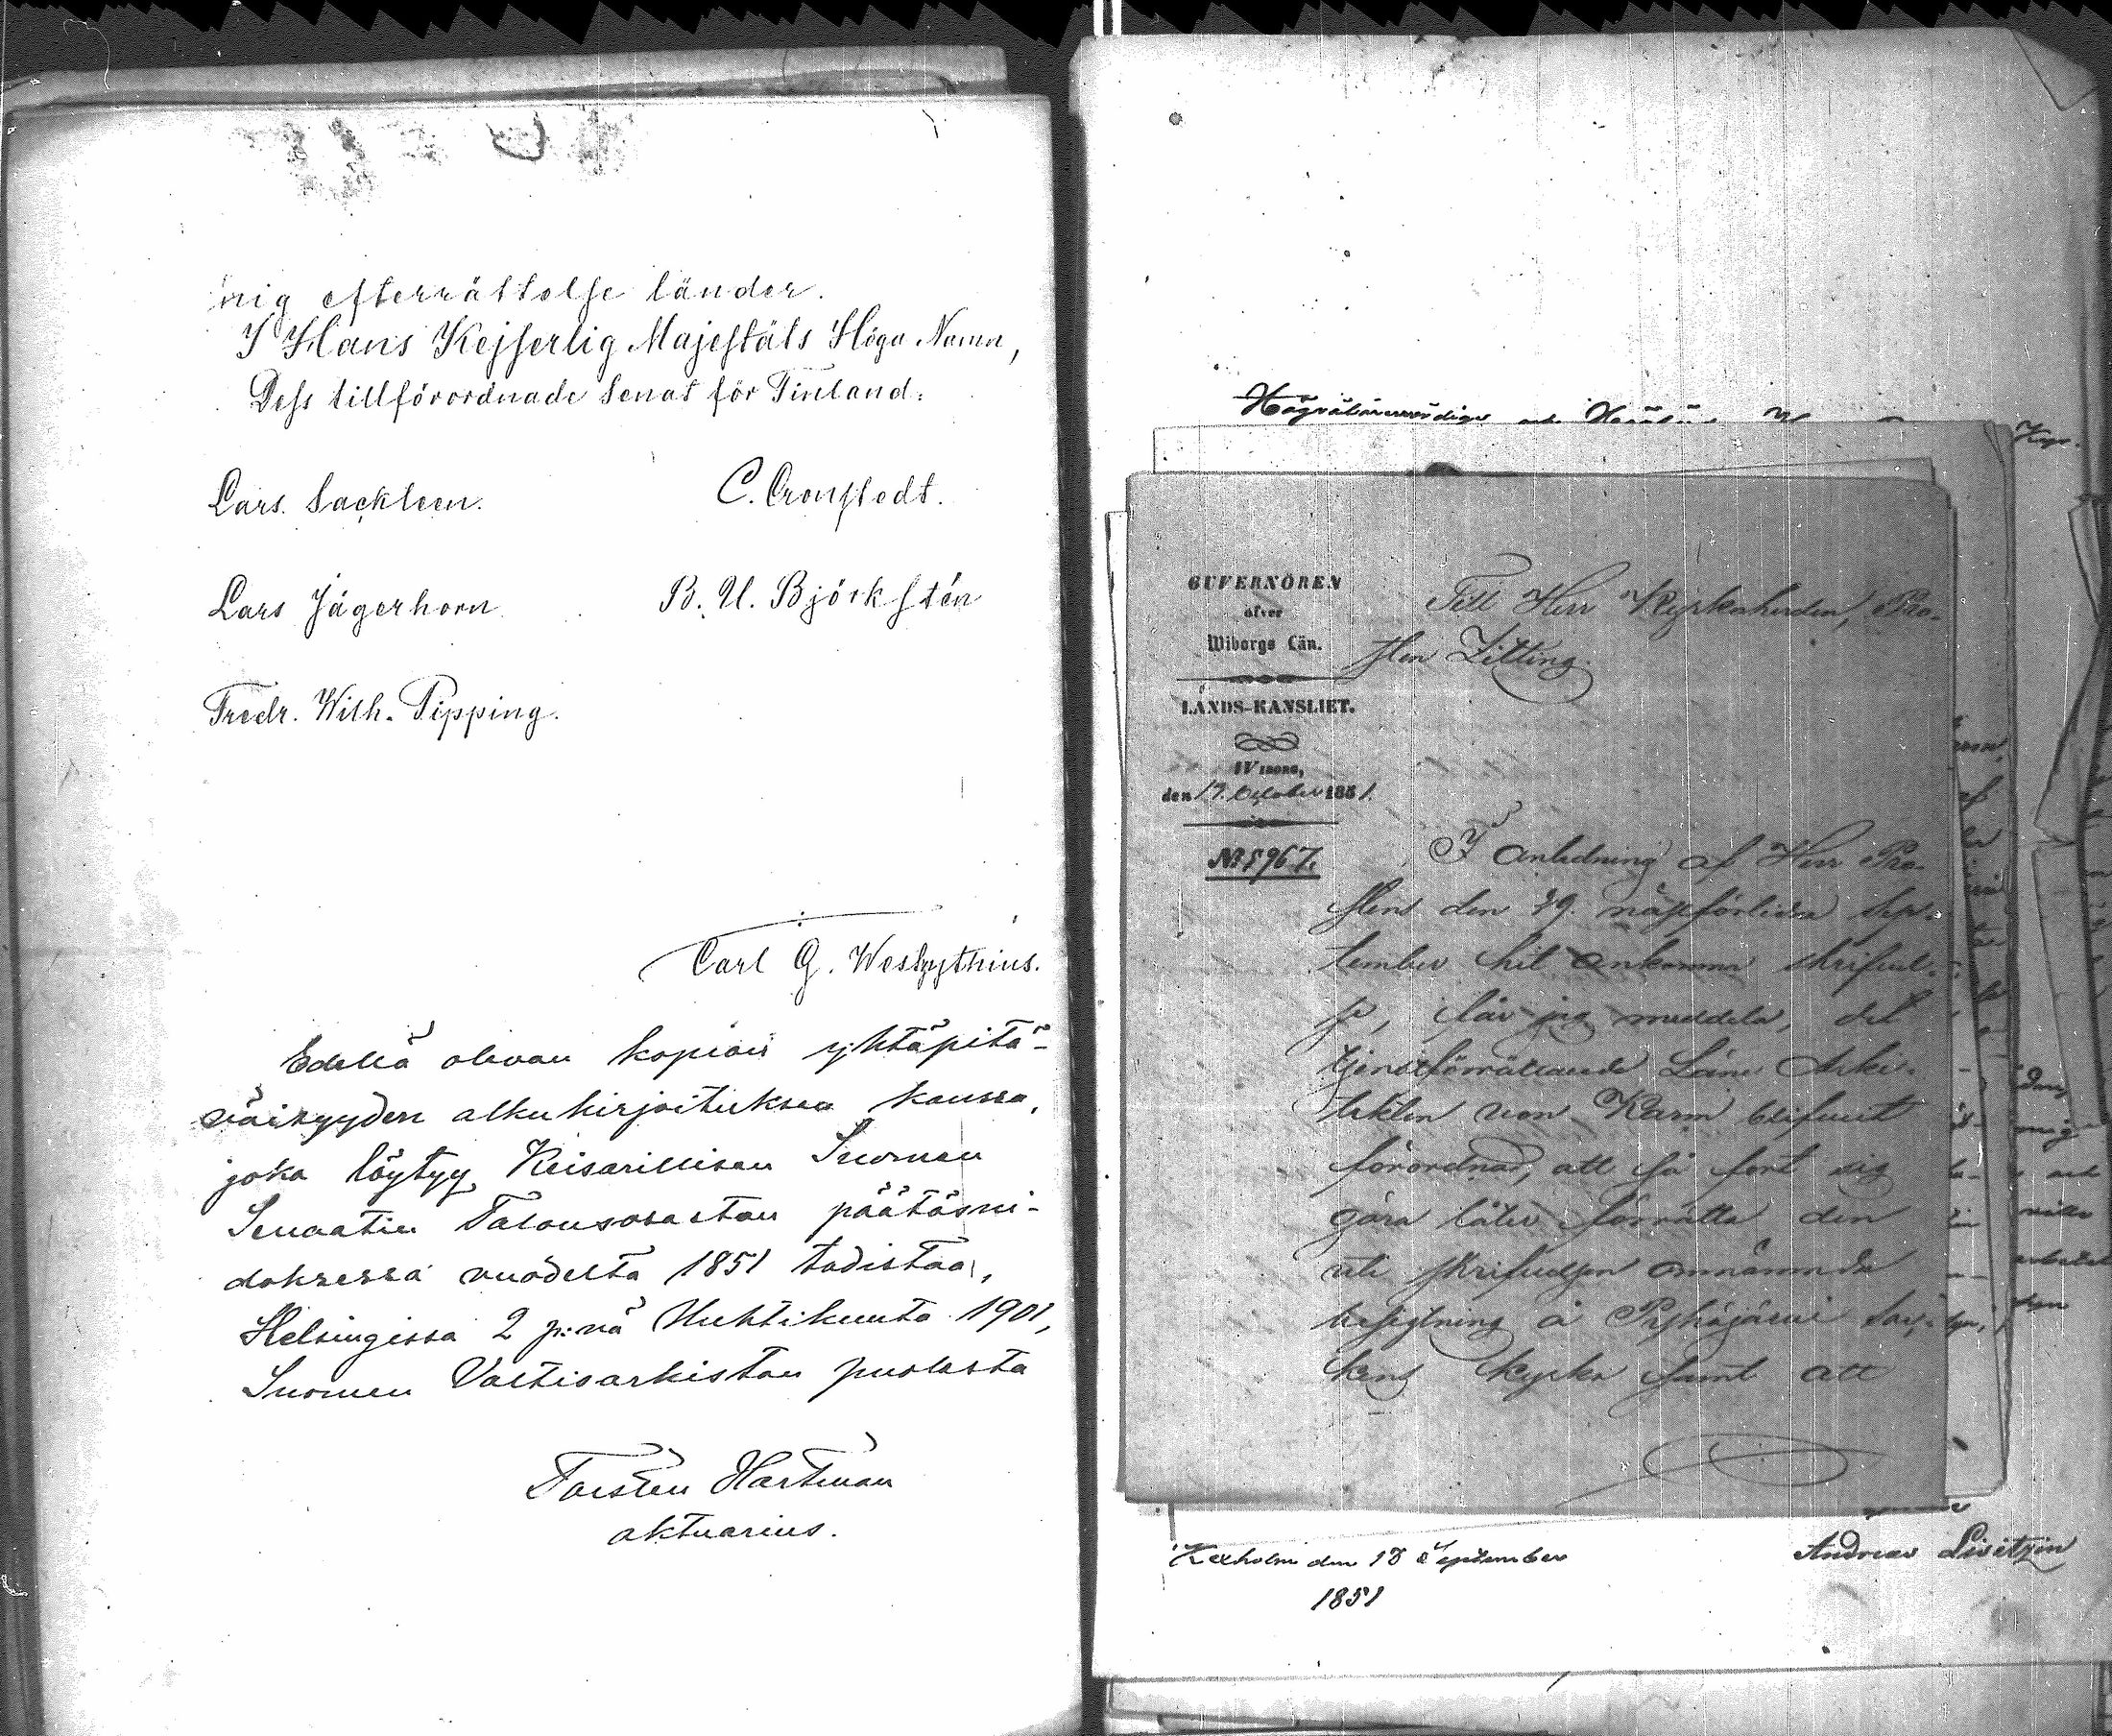 nig efterrättelse länder.
I Hans Kejserlig Majestäts Höga Namn,
Dess tillförordnade Senat för Finland:
Lars. Sackleen. C. Cronstedt.
Lars Jägerhorn. B. U. Björkstén
Fredr. Wilh. Pipping.
Carl G. Westzynthius.
Edellä olevan kopian yhtäpitä-
väisyyden alkukirjoituksen kanssa,
joka löytyy Keisarillisen Suomen
Senaatin Talousosaston päätösni-
doksessa vuodelta 1851 todistaa,
Helsingissä 2 p:nä Huhtikuuta 1901,
Suomen Valtioarkiston puolesta
Torsten Hartman
aktuarius.
Högvälärevördige och
GUVERNÖREN
öfver
Wiborgs Län.
LANDS-KANSLIET.
WIBORG,
den 17. October 1851.
№ 5967.
Till Herr Kyrkoherden, Pro-
sten Zitting.
I anledning af Herr Pro-
stens den 29. nästförlidna Sep-
tember hit ankomna skrifvel-
se, får jag meddela, det
tjenstförrättande Läns Arki-
tekten von Karm blifvit
förordnad, att så fort sig
göra låter förrätta den
uti skrifvelsen omnämnda
besigtning å Pyhäjärvi Soc-
kens kyrka samt att
Kexholm den 18 September
1851
Andreas Lisitzin